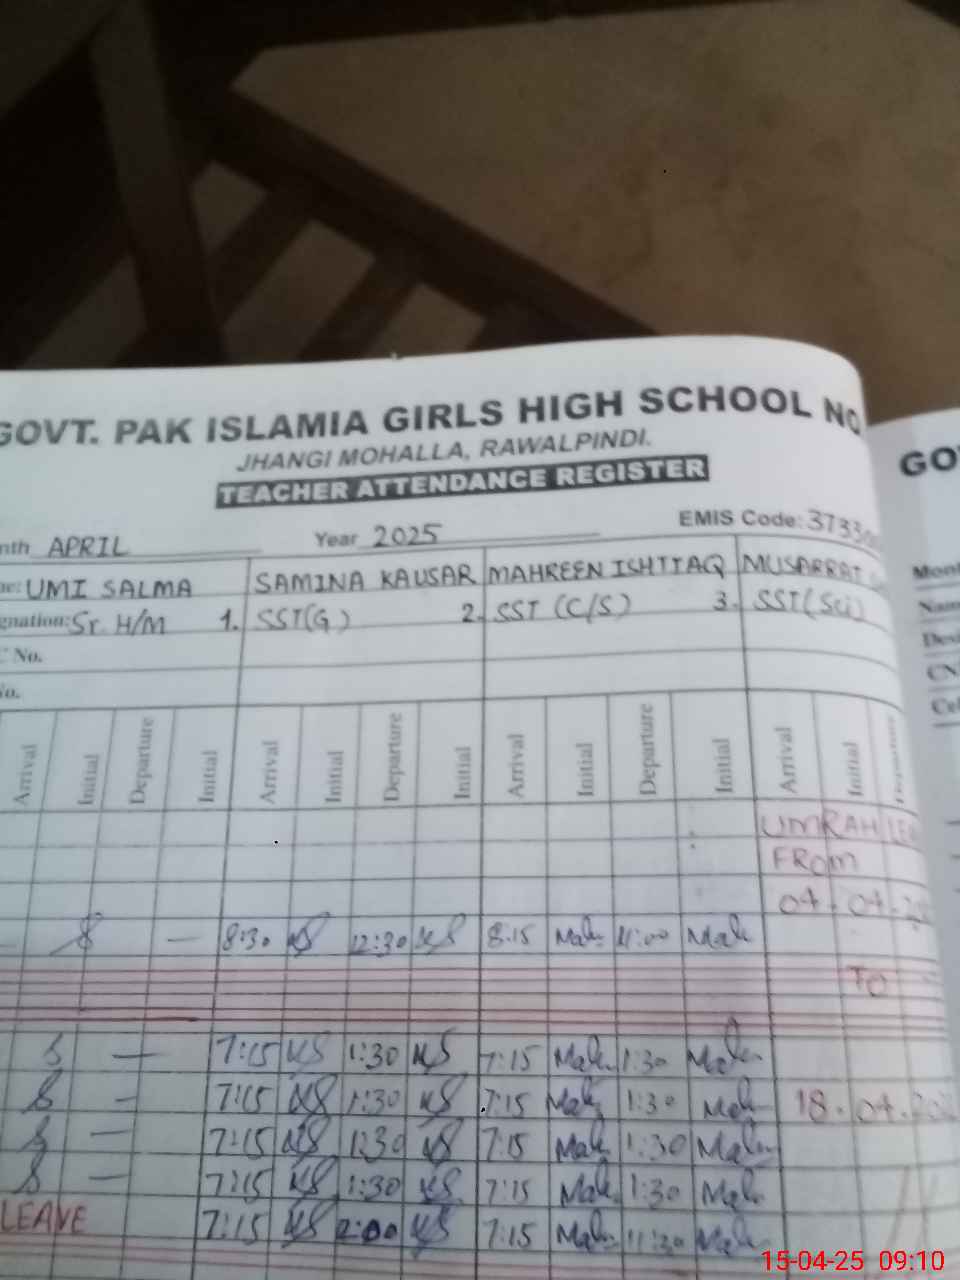 GOVT. PAK ISLAMIA GIRLS HIGH SCHOOL NO
GO
JHANGI MOHALLA, RAWALPINDI.
TEACHER ATTENDANCE REGISTER
nth APRIL Year 2025 EMIS Code: 3733
Mont
ne: UMI SALMA SAMINA KAUSAR MAHREEN ISHTIAQ MUSARRAT
Nam
gnation: Sr. H/M 1. SST(G) 2. SST (C/S) 3. SST(Sci)
Desi
C No.
CN
No.
Cel
Arrival Initial Departure Initial Arrival Initial Departure Initial Arrival Initial Departure Initial Arrival Initial Departure
UMRAH LEA
FROM
04-04-20
— 8:30 12:30 8:15 Mah 11:00 Mah
TO
— 7:15 1:30 7:15 Mah 1:30 Mah
— 7:15 1:30 7:15 Mah 1:30 Mah 18.04.20
— 7:15 1:30 7:15 Mah 1:30 Mah
— 7:15 1:30 7:15 Mah 1:30 Mah
LEAVE 7:15 2:00 7:15 Mah 11:30 Mah
15-04-25 09:10